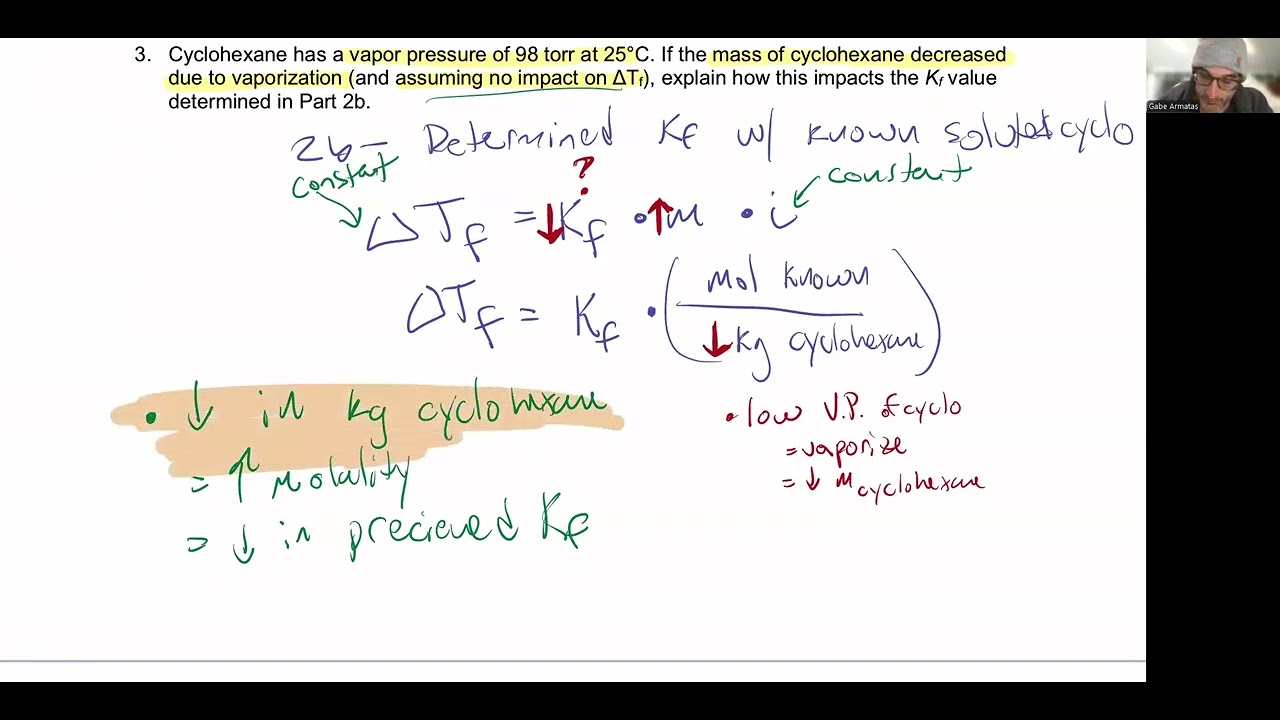 3. Cyclohexane has a vapor pressure of 98 torr at 25°C. If the mass of cyclohexane decreased
due to vaporization (and assuming no impact on ΔTf), explain how this impacts the Kf value
determined in Part 2b.
Gabe Armatas
2b - Determined Kf w/ known solute cyclo
constant
?
constant
ΔTf = ↓Kf • ↑m • i
ΔTf = Kf • (mol known / ↓kg cyclohexane)
• ↓ in kg cyclohexane
= ↑ molality
= ↓ in precieved Kf
• low V.P. of cyclo
= vaporize
= ↓ m cyclohexane